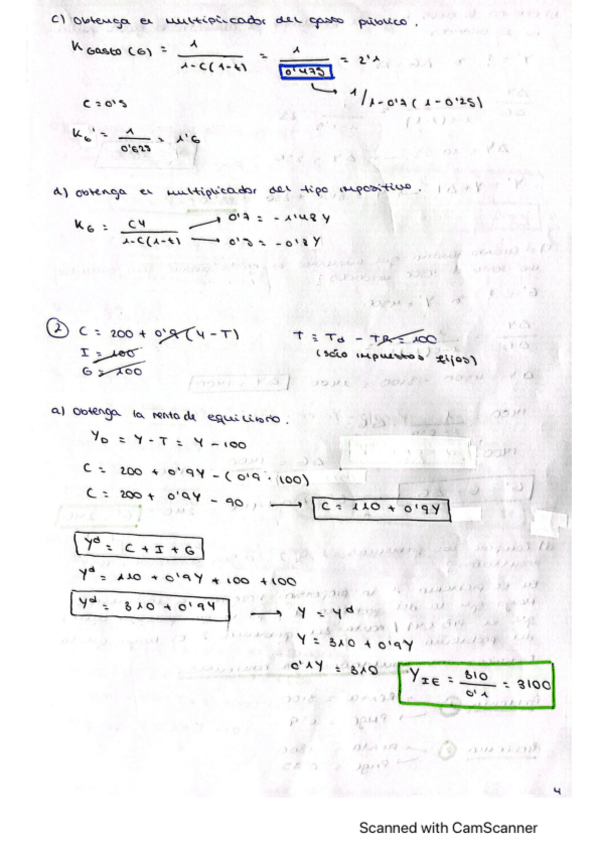 c) Obtenga el multiplicador del gasto público.
K Gasto (G) = 1 / 1-C(1-t) = 1 / 0'475 = 2'1
1/1-0'7(1-0'25)
C = 0'5
KG' = 1 / 0'625 = 1'6
d) Obtenga el multiplicador del tipo impositivo.
KG = CY / 1-C(1-t) → 0'7 = -1'48Y
→ 0'5 = -0'8Y
② C = 200 + 0'9 (Y-T) T = Td - TR = 100
I = 100 (solo impuestos fijos)
G = 100
a) Obtenga la renta de equilibrio.
YD = Y - T = Y - 100
C = 200 + 0'9Y - (0'9 · 100)
C = 200 + 0'9Y - 90 → C = 110 + 0'9Y
Yd = C + I + G
Yd = 110 + 0'9Y + 100 + 100
Yd = 310 + 0'9Y → Y = Yd
Y = 310 + 0'9Y
0'1Y = 310
YIE = 310 / 0'1 = 3100
4
Scanned with CamScanner